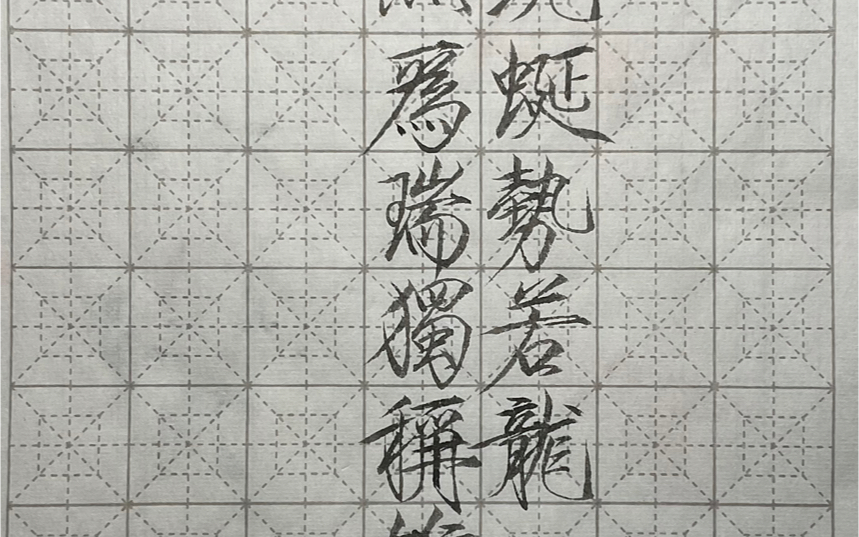 蜒勢若龍
為瑞獨稱